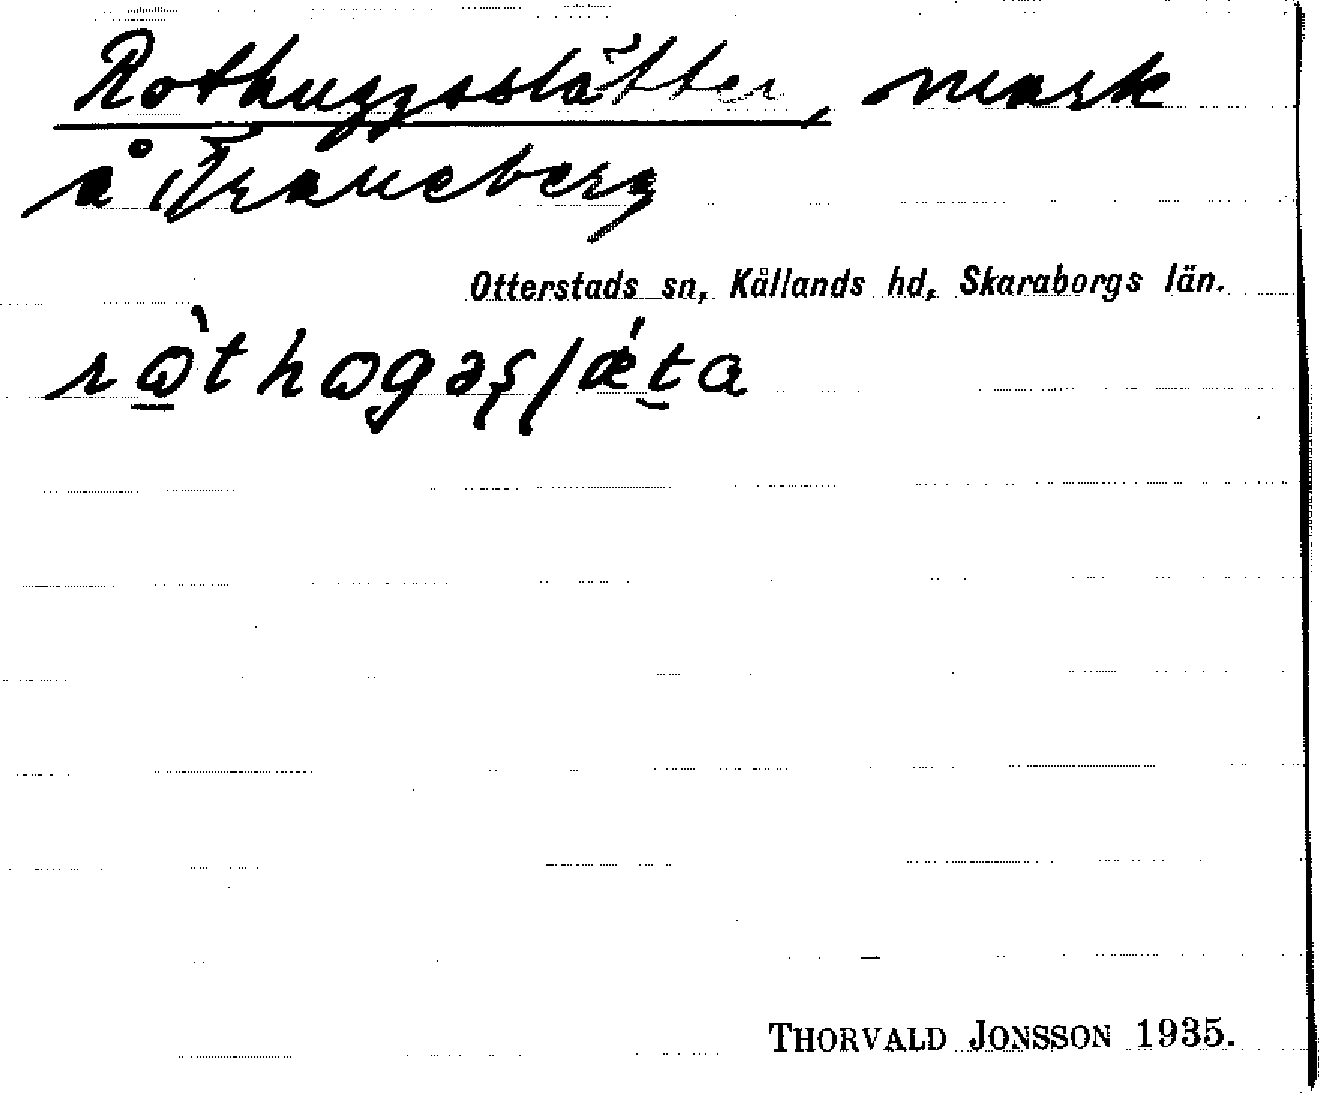 Rothuggsslätter, mark
å Traneberg
Otterstads sn, Kållands hd, Skaraborgs län.
THORVALD JONSSON 1935.